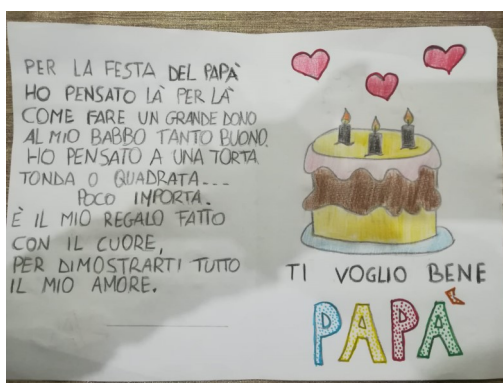 PER LA FESTA DEL PAPÀ
HO PENSATO LÀ PER LÀ
COME FARE UN GRANDE DONO
AL MIO BABBO TANTO BUONO.
HO PENSATO A UNA TORTA
TONDA O QUADRATA...
POCO IMPORTA.
È IL MIO REGALO FATTO
CON IL CUORE,
PER DIMOSTRARTI TUTTO
IL MIO AMORE.
TI VOGLIO BENE
PAPÀ